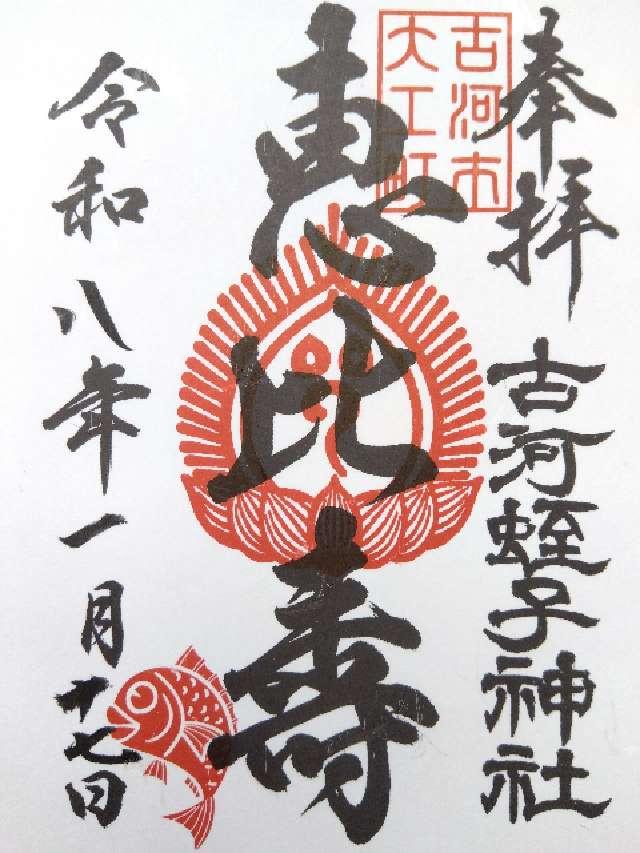 奉拝
古河蛭子神社
古河市
大工町
恵比寿
令和八年一月十七日